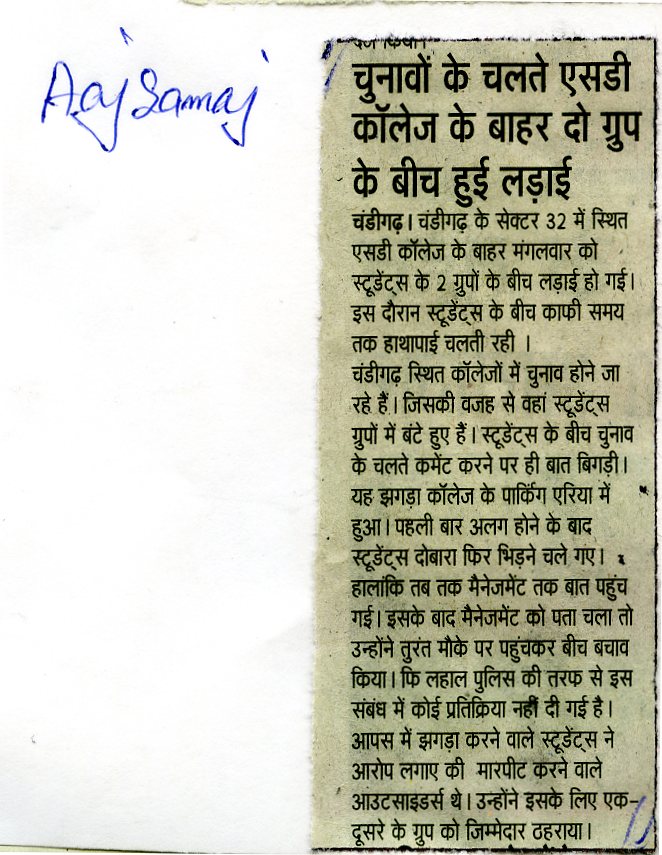 Aaj Samaj
चुनावों के चलते एसडी
कॉलेज के बाहर दो ग्रुप
के बीच हुई लड़ाई
चंडीगढ़। चंडीगढ़ के सेक्टर 32 में स्थित
एसडी कॉलेज के बाहर मंगलवार को
स्टूडेंट्स के 2 ग्रुपों के बीच लड़ाई हो गई।
इस दौरान स्टूडेंट्स के बीच काफी समय
तक हाथापाई चलती रही ।
चंडीगढ़ स्थित कॉलेजों में चुनाव होने जा
रहे हैं। जिसकी वजह से वहां स्टूडेंट्स
ग्रुपों में बंटे हुए हैं। स्टूडेंट्स के बीच चुनाव
के चलते कमेंट करने पर ही बात बिगड़ी।
यह झगड़ा कॉलेज के पार्किंग एरिया में
हुआ। पहली बार अलग होने के बाद
स्टूडेंट्स दोबारा फिर भिड़ने चले गए।
हालांकि तब तक मैनेजमेंट तक बात पहुंच
गई। इसके बाद मैनेजमेंट को पता चला तो
उन्होंने तुरंत मौके पर पहुंचकर बीच बचाव
किया। फि लहाल पुलिस की तरफ से इस
संबंध में कोई प्रतिक्रिया नहीं दी गई है।
आपस में झगड़ा करने वाले स्टूडेंट्स ने
आरोप लगाए की मारपीट करने वाले
आउटसाइडर्स थे। उन्होंने इसके लिए एक-
दूसरे के ग्रुप को जिम्मेदार ठहराया।